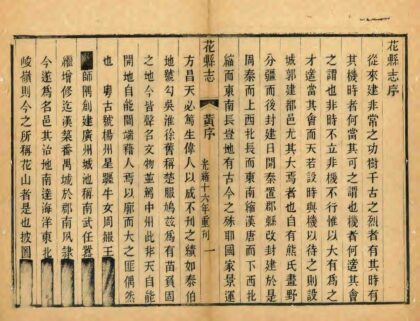 從來建非常之功樹千古之烈者有其時有
其機時者何當其可之謂也機者何適其會
之謂也非時不立非機不行惟以大有爲之
才適當其會而天若設時與機以待之則設
城郭建都邑尤其大焉者也自有熊氏畫野
分疆而後封建日開秦置郡縣改封建於是
周秦而上西北長而東南縮漢唐而下西北
縮而東南長豈地有古今之殊耶國家景運
花縣志 黃序 光緒十六年重刊 一
方昌天必篤生偉人以成不刊之績如泰伯
地號勾吳淮徐舊稱楚服鳩茲爲有苗負固
之地今皆聲名文物並中州此非天自能
開地自能闢端藉人焉以廓而大之匪偶然
也粵古號揚州星驟牛女周赧王
師隅創建廣州城池稱南武任囂
雉增修迄漢築番禺城於郡南夙隸
今遂爲名邑其治地南達海洋東北
峻嶺則今之所稱花山者是也披圖